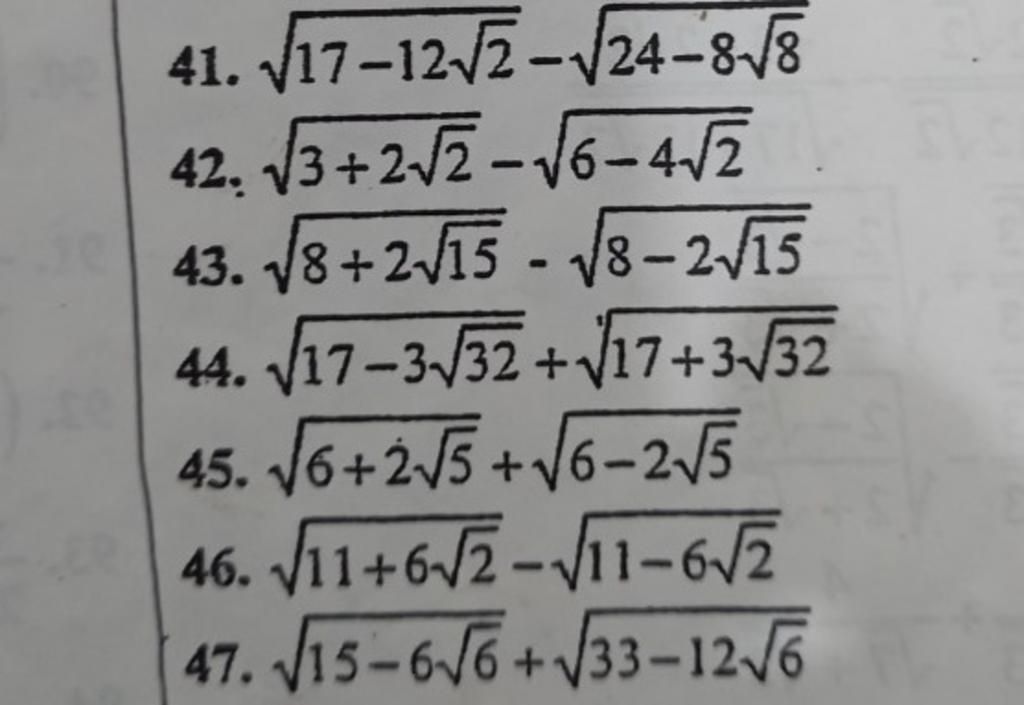 41. √(17−12√2) − √(24−8√8)
42. √(3+2√2) − √(6−4√2)
43. √(8+2√15) - √(8−2√15)
44. √(17−3√32) + √(17+3√32)
45. √(6+2√5) + √(6−2√5)
46. √(11+6√2) − √(11−6√2)
47. √(15−6√6) + √(33−12√6)